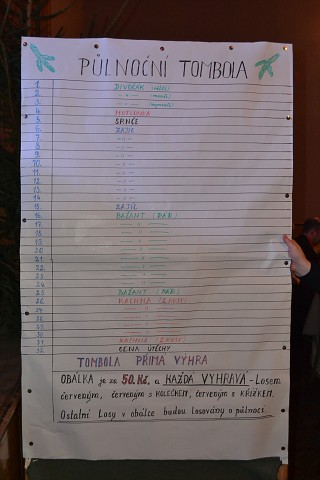 PŮLNOČNÍ TOMBOLA
1. DIVOČÁK (větší)
2. — " — (menší)
3. — " —
4. MUFLONKA
5. SRNČE
6. ZAJÍC
7. — " —
8. — " —
9. — " —
10. — " —
11. — " —
12. — " —
13. — " —
14. — " —
15. ZAJÍC
16. BAŽANT (PÁR)
17. — " —
18. — " —
19. — " —
20. — " —
21. — " —
22. — " —
23. — " —
24. — " —
25. BAŽANT (PÁR)
26. KACHNA (2 KUSY)
27. — " —
28. — " —
29. — " —
30. — " —
31. KACHNA (2 KUSY)
32. CENA ÚTĚCHY
TOMBOLA PŘÍMÁ VÝHRA
OBÁLKA je za 50.Kč. a KAŽDÁ VYHRÁVÁ - Losem
červeným, červeným s KOLEČKEM, červeným s KŘÍŽKEM.
Ostatní Losy v obálce budou losovány o půlnoci.